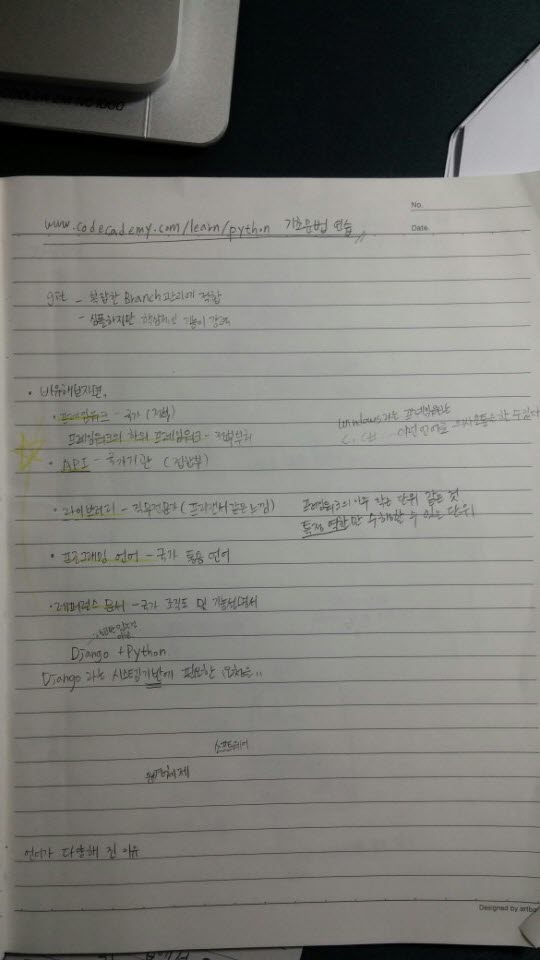 No.
Date
www.codecademy.com/learn/python 기초문법 연습
git - 복잡한 Branch 관리에 적합
- 심플하지만 핵심적인 기능이 강력
• 비유해보자면,
• 프레임워크 - 국가 (정부)
프레임워크의 하위 프레임워크 - 정부부처
Windows라는 프레임워크는
C, C#, ... 어떤 언어로 의사소통은 할 수 있다
• API - 국가기관 (집행부)
• 라이브러리 - 직무전문가 (프리랜서같은 느낌)
프레임워크의 아주 작은 단위 같은 것
특정 역할만 수행할 수 있는 단위
• 프로그래밍 언어 - 국가 통용 언어
• 레퍼런스 문서 - 국가 조직도 및 기능설명서
Django + Python
Django 라는 시스템기반에 필요한
소프트웨어
운영체제
언어가 다양해 진 이유
Designed by